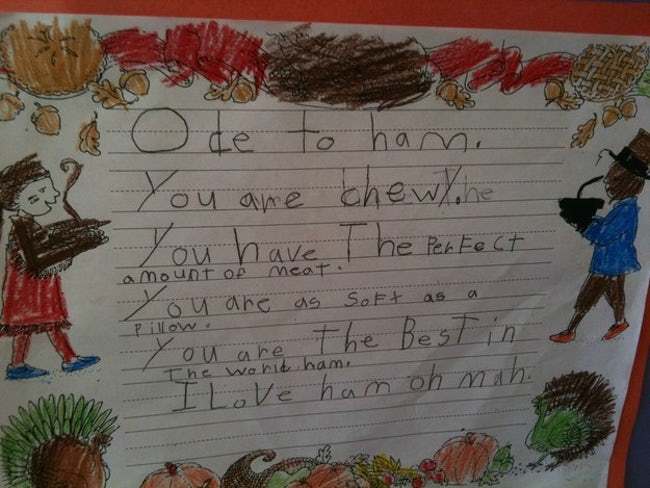 Ode to ham.
You are chewy. he
You have The Perfect
amount of meat.
You are as Soft as a
Pillow.
You are The Best in
The world ham.
I Love ham oh mah.